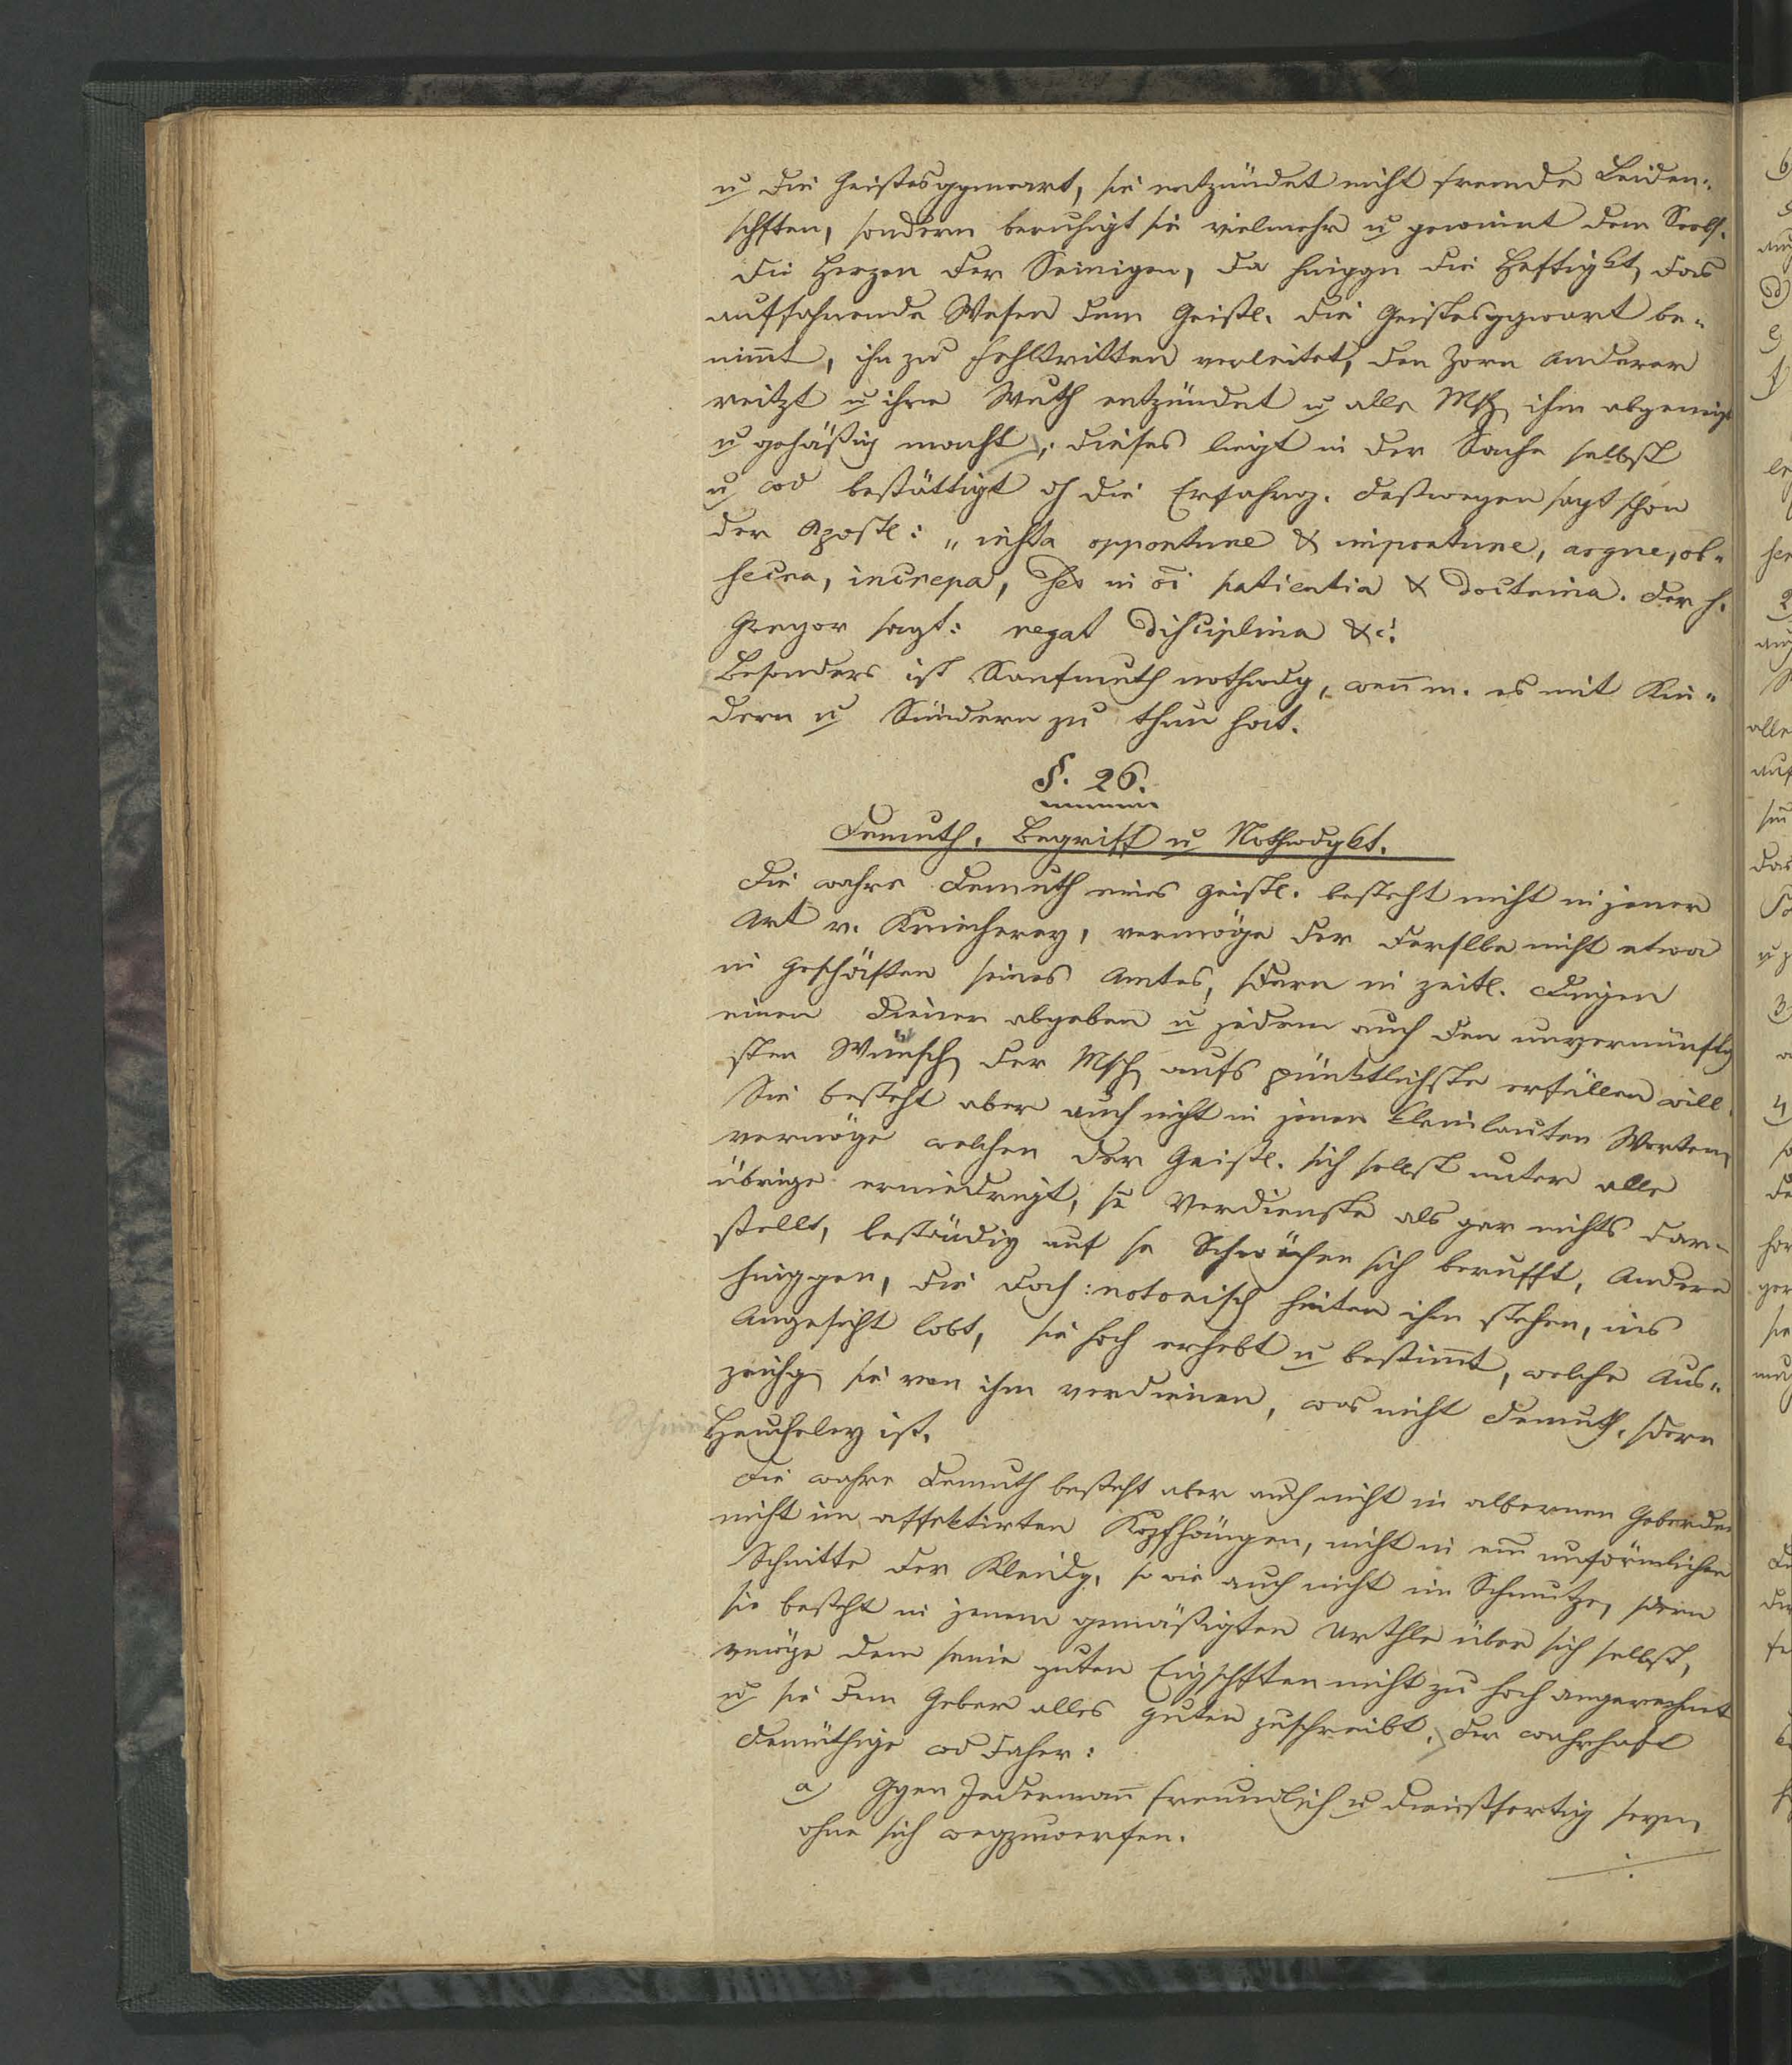 u die Geistesggenwart, sie entzündet nicht fremde Leiden-
schften, sondern beruhigt sie vielmehr u gewinnt dem Seels.
die Herzen der Seinigen, da hinggn die Heftigkt, das
auffahrende Wesen dem Geistl. die Geistesggwart be-
nim̅t, ihn zu Fehltritten verleitet, den Zorn Anderer
reitzt u ihre Wuth entzündet u alle Msch ihm abgeneigt
u gehäßig macht; dieses liegt in der Sache selbst
u wd bestättigt dh die Erfahrng. Deßwegen sagt schon
der Apostl: „insta opportune & importune, argue, ob-
secra, increpa, sed in oi patientia & doctrina. Der h.
Gregor sagt: regat disciplina &c!
Besonders ist Sanfmuth nothwdg, wen̅ m. es mit Kin-
dern u Sündern zu thun hat.
§. 26.
Demuth. Begriff u Nothwdgkt.
Die wahre Demuth eines Geistl. besteht nicht in jener
Art v. Kriecherey, vermöge der derslbe nicht etwa
in Geschäften seines Amtes, sdern in zeitl. Dingen
einen Diener abgeben u jedem auch den unvernünftig
sten Wunsch der Msch aufs pünktlichste erfüllen will.
Sie besteht aber auch nicht in jenen kleinlauten Worten,
vermöge welchen der Geistl. sich selbst unter alle
übrige erniedrigt, se Verdienste als gar nichts dar-
stellt, beständig auf se Schwächen sich berufft, Andere
hinggen, die doch notorisch hinter ihm stehen, ins
Angesicht lobt, sie hoch erhebt u bestim̅t, welche Aus-
zeichg sie von ihm verdienen, was nicht Demuth, sdern
Heucheley ist.
Die wahre Demuth besteht aber auch nicht in albernen Geberden
nicht im affektirten Kopfhängen, nicht in eim unförmlichen
Schnitte der Kleidg, so wie auch nicht im Schmutze, sdern
sie besteht in jenem gemäßigten Urthle über sich selbst,
vmöge dem seine guten Eigschften nicht zu hoch angerechnet
u sie dem Geber alles guten zuschreibt. Der wahrhaft
Demüthige wd daher:
a) Ggen Jederman̅ freundlich u dienstfertig seyn,
ohne sich wegzuwerfen.